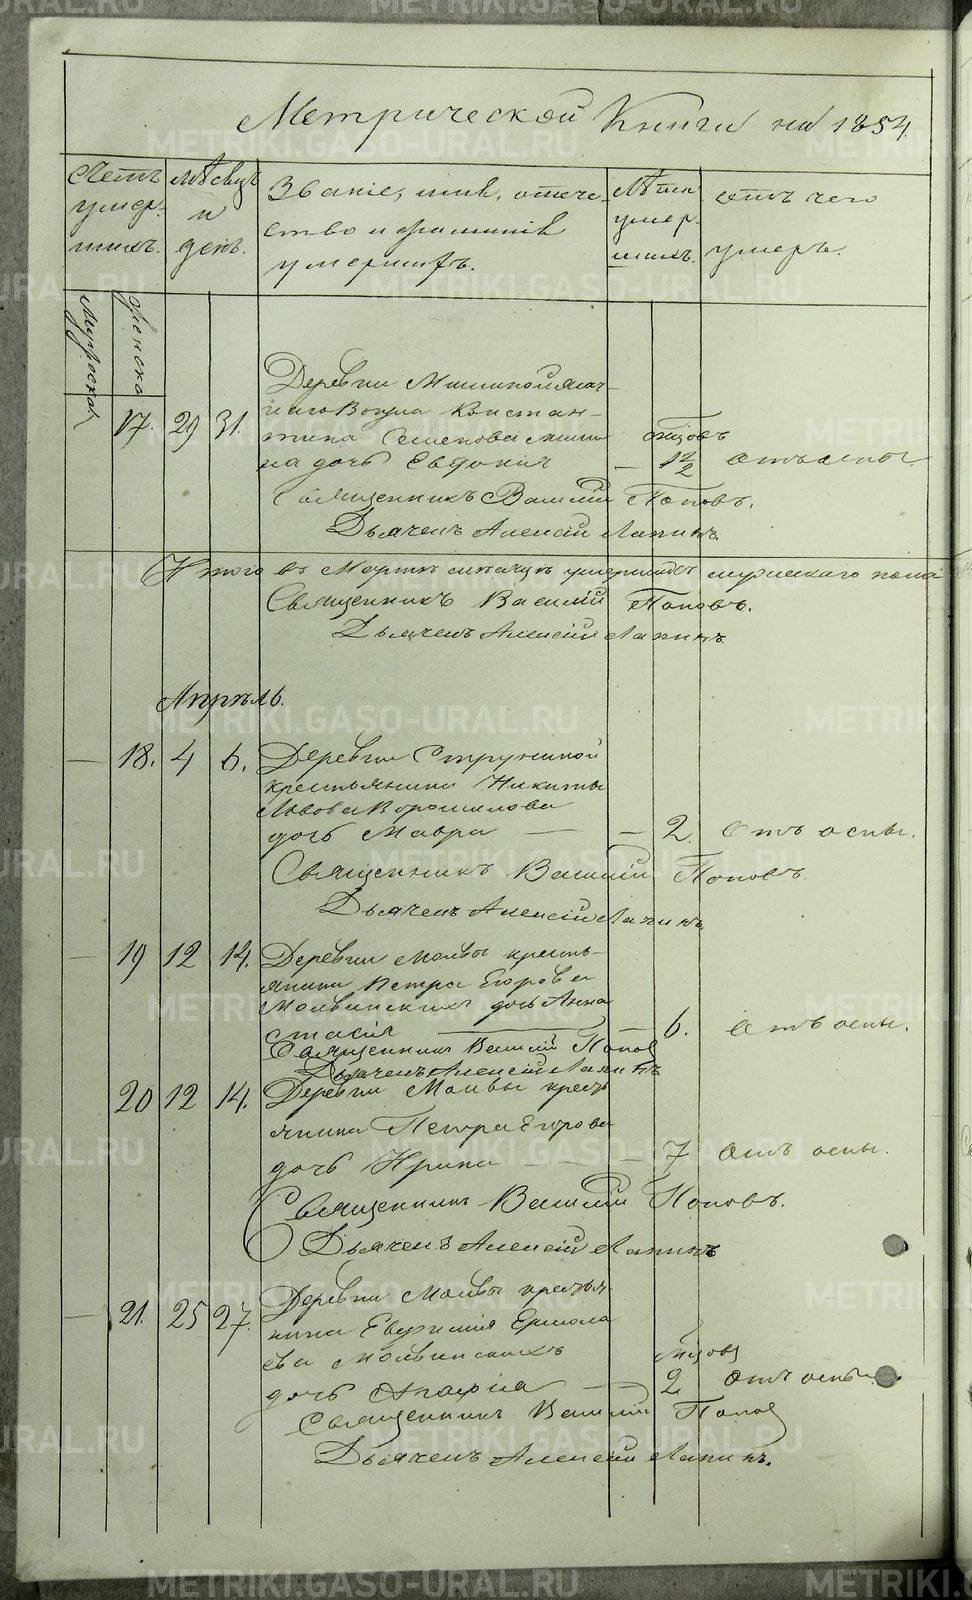 Метрической Книги на 1854.
Счетъ умер- шихъ.
Мѣсяцъ и день.
Званіе, имя, отече-
ство и фамилія
умершихъ.
Лѣта умер- шихъ.
отъ чего умеръ.
Мужеска
женска
Деревни
17. 29 31.
Констан-
тина Семенова
на дочь Евдокія — 1 1/2 отъ оспы.
Священникъ Василій Поповъ.
Дьячекъ Алексій Лапинъ.
Итого въ Мартѣ мѣсяцѣ умершихъ мужескаго пола
Священникъ Василій Поповъ.
Дьячекъ Алексій Лапинъ.
Апрѣль.
— 18. 4 6. Деревни
крестьянина Никиты
Львова Ворошилова
дочь Мавра — — 2. Отъ оспы.
Священникъ Василій Поповъ.
Дьячекъ Алексій Лапинъ.
— 19 12 14. Деревни Молвы кресть-
янина Петра Егорова
Молвинскихъ дочь Анна
стасія — — 6. Отъ оспы.
Священникъ Василій Попов
Дьячекъ Алексій Лапинъ.
20 12 14. Деревни Молвы кресть
янина Петра Егорова
дочь Ирина — — 7 Отъ оспы.
Священникъ Василій Поповъ.
Дьячекъ Алексій Лапинъ
— 21. 25 27. Деревни Молвы крестья-
нина Евфимія Ермола
ева Молвинскихъ
дочь Агафія — 2 Отъ оспы.
Священникъ Василій Попов
Дьячекъ Алексій Лапинъ.
METRIKI.GASO-URAL.RU